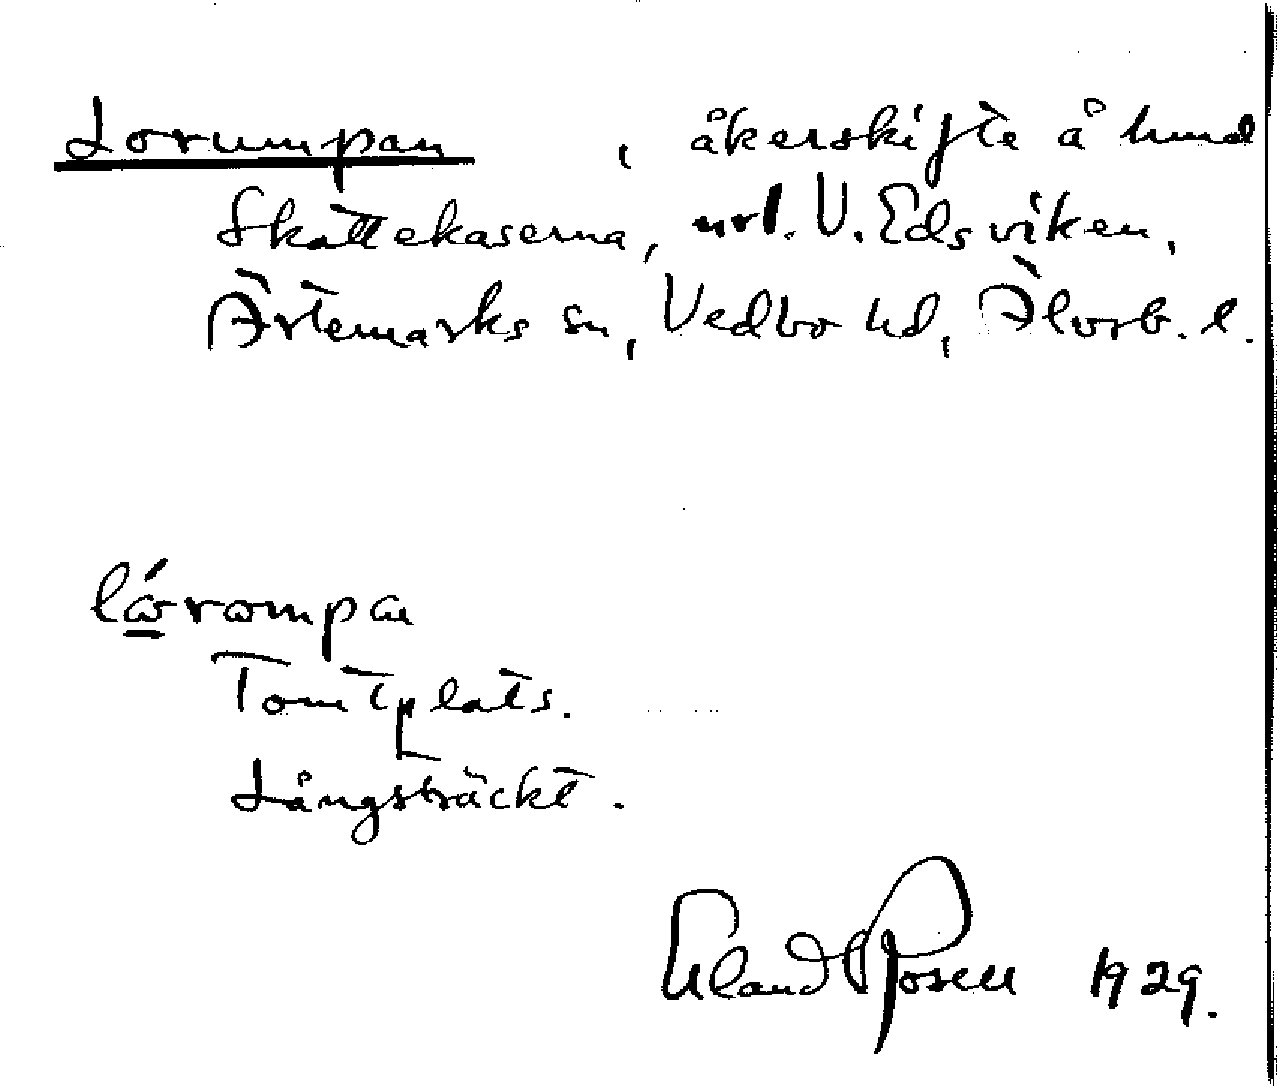 Lorumpan, åkerskifte å hmd
Skattekaserna, nrl. V. Edsviken,
Ärtemarks sn, Vedbo hd, Älvsb. l.
lǻrompa
Tomtplats.
Långsträckt.
Erland Rosell 1929.